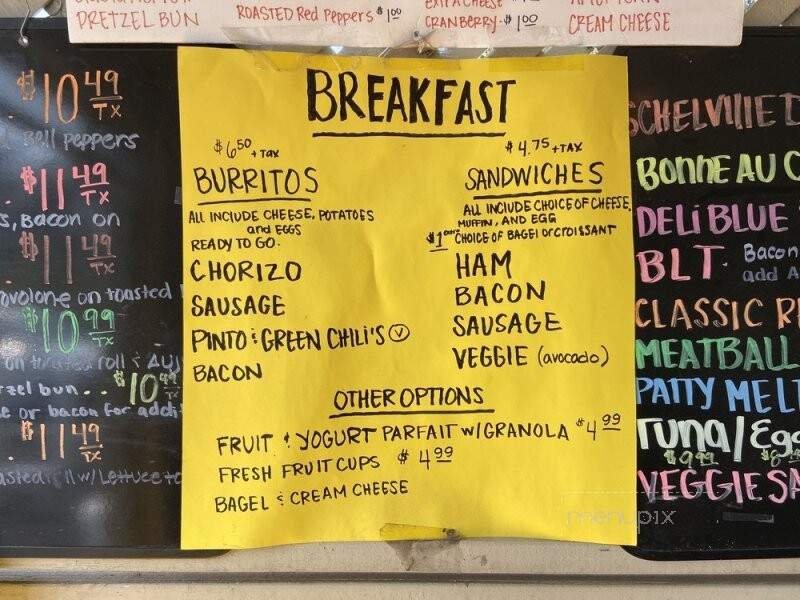 PRETZEL BUN
ROASTED Red Peppers $1.00
CRANBERRY · $1.00
CREAM CHEESE
$10 49 TX
Bell peppers
$11 49 TX
, Bacon on
$11 49 TX
on toasted
$10 99 TX
roll &
bun.. $10 49 TX
or bacon for
$11 49 TX
w/Lettuce
BREAKFAST
$6.50 + TAX
BURRITOS
ALL INCLUDE CHEESE, POTATOES
and EGGS
READY TO GO.
CHORIZO
SAUSAGE
PINTO & GREEN CHILI'S Ⓥ
BACON
$4.75 + TAX
SANDWICHES
ALL INCLUDE CHOICE OF CHEESE,
MUFFIN, AND EGG
$1 CHOICE OF BAGEL OR CROISSANT
HAM
BACON
SAUSAGE
VEGGIE (avocado)
OTHER OPTIONS
FRUIT & YOGURT PARFAIT W/GRANOLA $4.99
FRESH FRUIT CUPS $4.99
BAGEL & CREAM CHEESE
SCHELLVILLE
BONNE AU
DELI BLUE
BLT. Bacon
add
CLASSIC
MEATBALL
PATTY MELT
TUNA/Egg
$9.99
VEGGIE
menupix